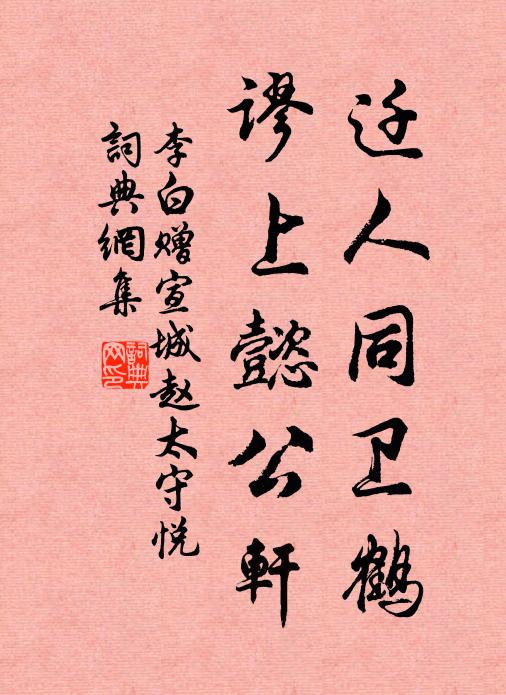 迁人同卫鹤
谬上懿公軒
李白赠宣城赵太守悦
詞典網集
詞典
网印